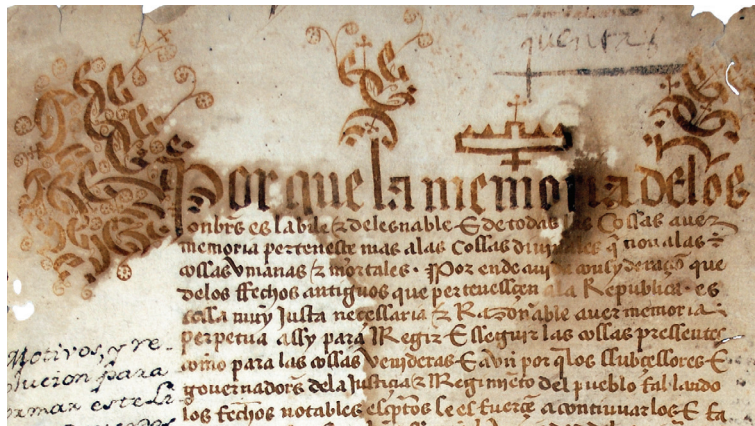 quentas
Por que la memoria delos
onbrs es labile & delesnable · E de todas las Cossas aver
memoria perteneste mas alas Cossas diuinales q̃ non alas
cossas vmanas & mortales · Por ende avida consyderaçõ que
delos ffechos antiguos que pertenessçen ala Republica · es
cossa muy Justa necessaria & Razonable aver memoria
perpetua assy para Regir E sseguir las cossas pressentes
como para las cossas venideras E avn por q̃ los ssubçessores E
gouernadors dela Justiçia & Regimiẽto del pueblo fallando
los fechos notables escptos se esfuerçẽ acontinuarlos E fa
Motivos, y re-
olucion para
ormar este li-